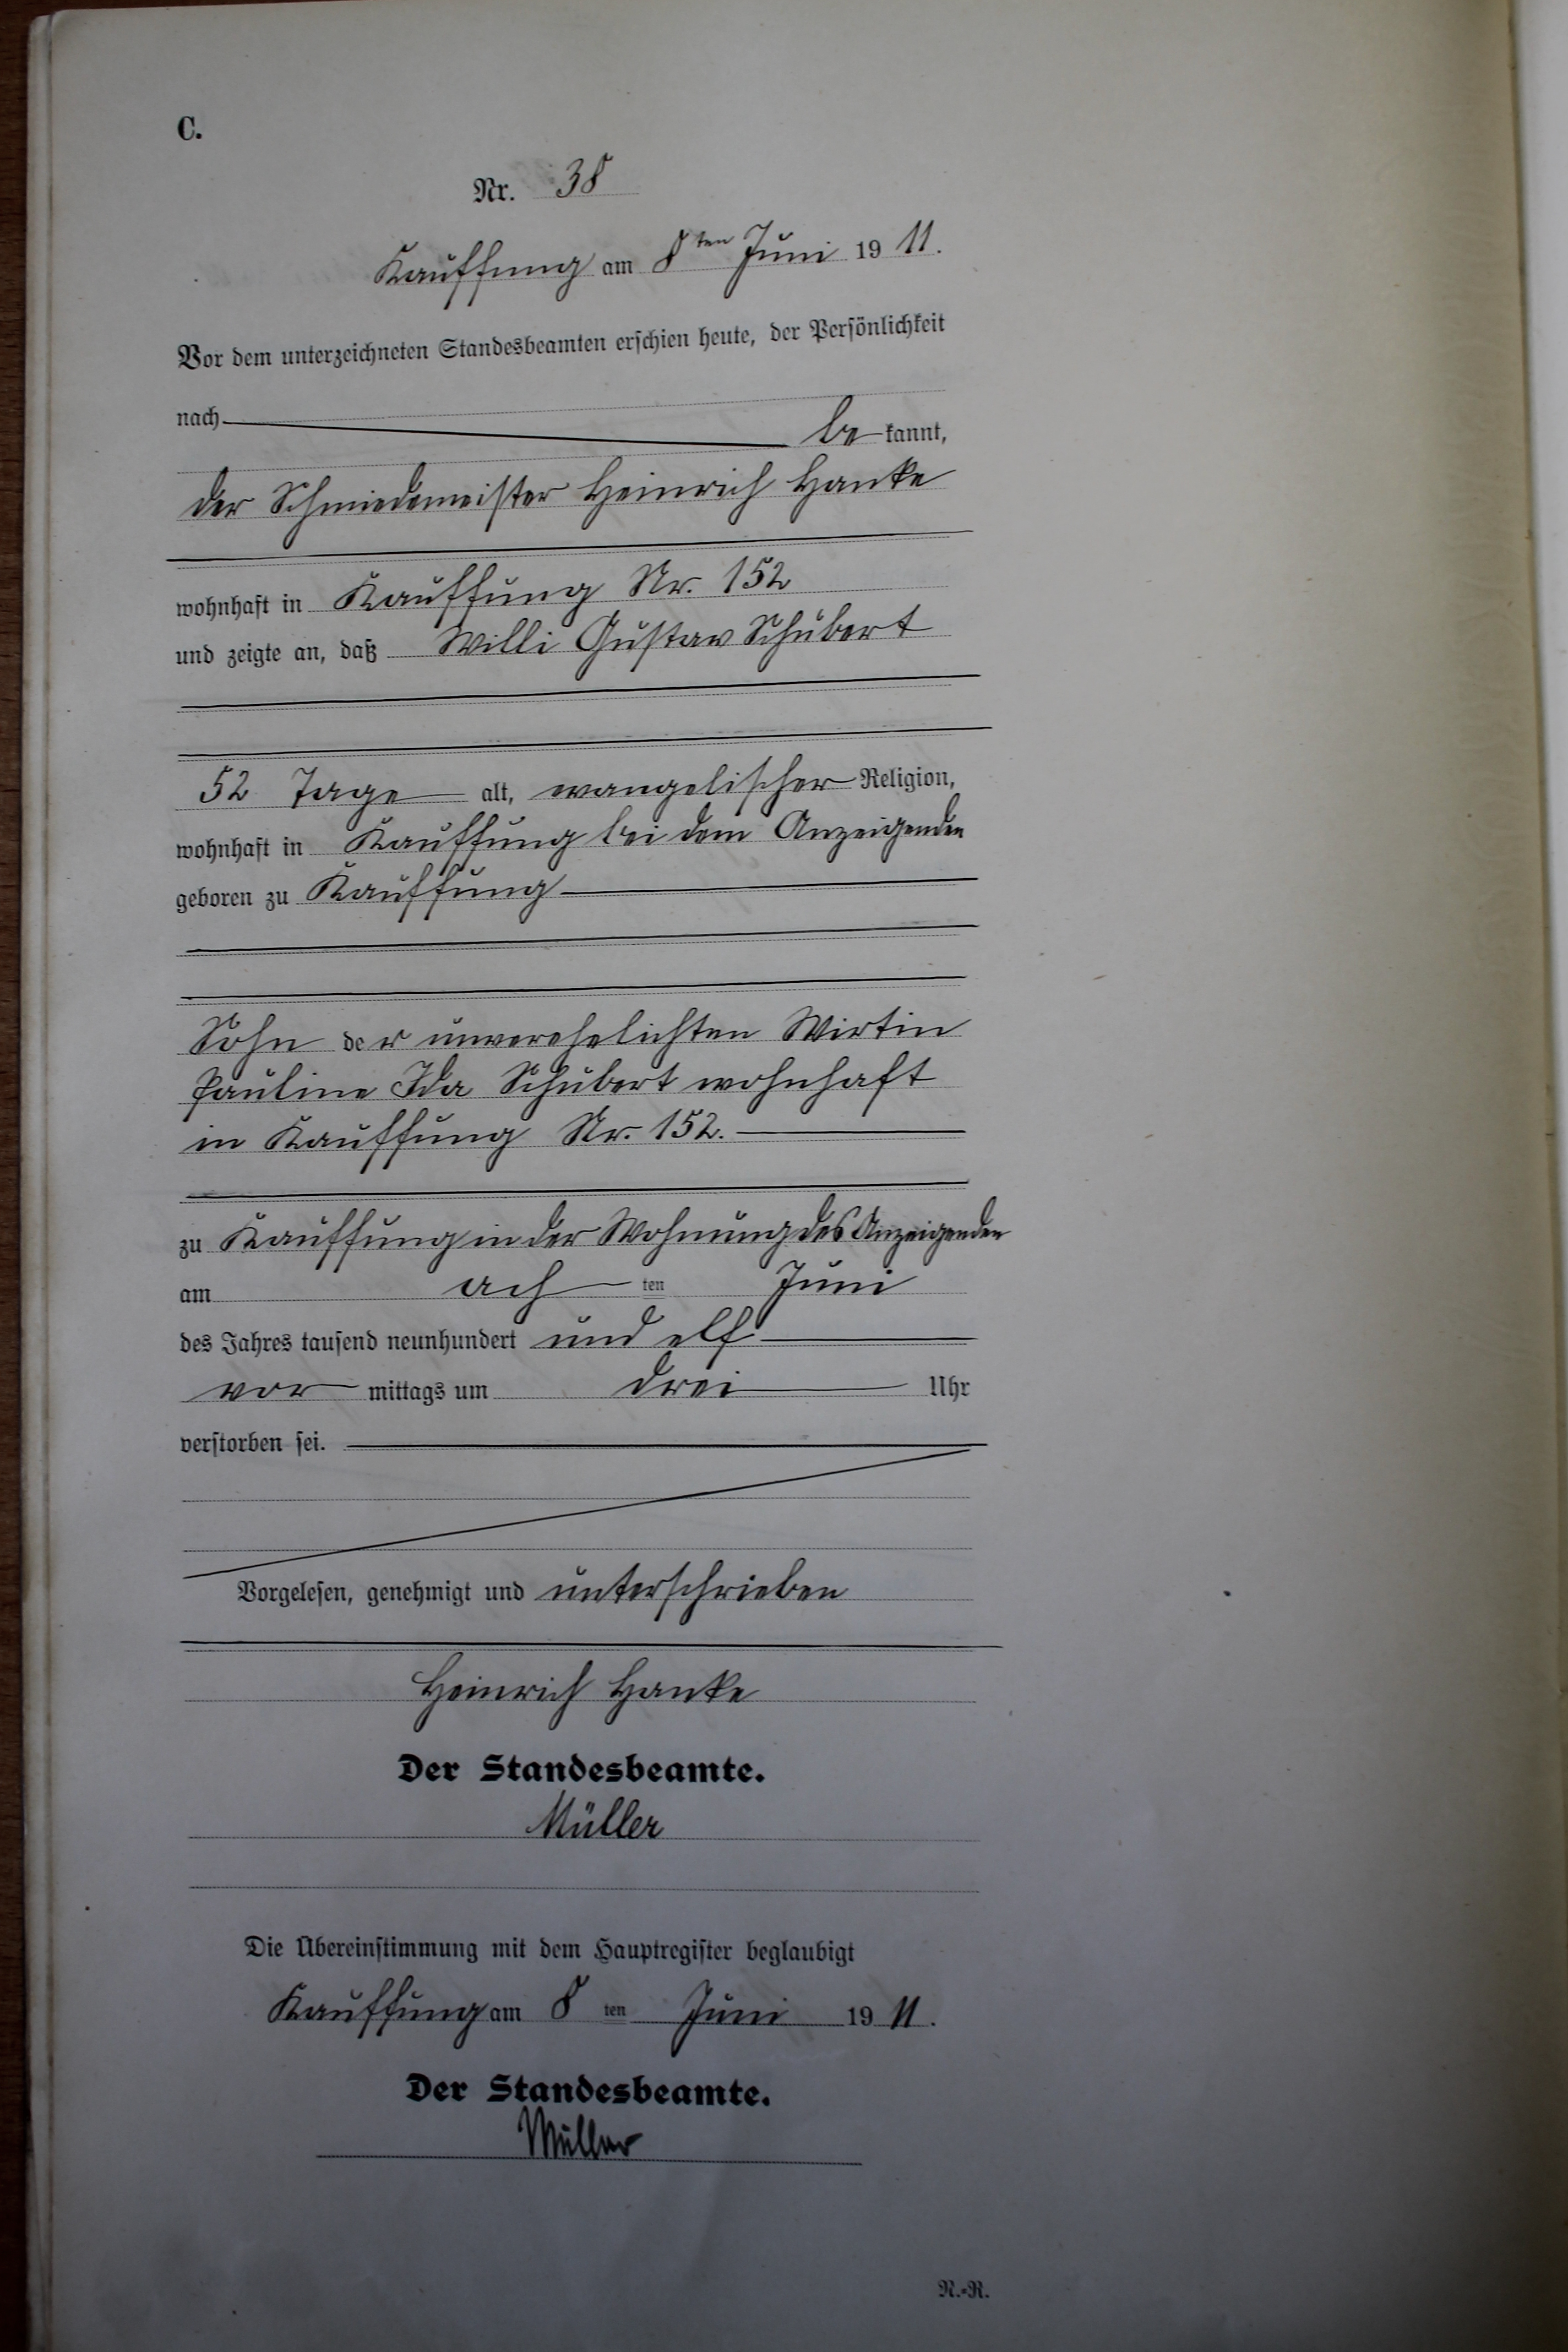 C.
Nr. 38
Kauffung am 8ten Juni 1911.
Vor dem unterzeichneten Standesbeamten erschien heute, der Persönlichkeit
nach be kannt,
der Schmiedemeister Heinrich Hanke
wohnhaft in Kauffung Nr. 152
und zeigte an, daß Willi Gustav Schubert
52 Tage alt, evangelischer Religion,
wohnhaft in Kauffung bei dem Anzeigenden
geboren zu Kauffung
Sohn der unverehelichten Wirtin
Pauline Ida Schubert wohnhaft
in Kauffung Nr. 152.
zu Kauffung in der Wohnung des Anzeigenden
am ach ten Juni
des Jahres tausend neunhundert und elf
vor mittags um drei Uhr
verstorben sei.
Vorgelesen, genehmigt und unterschrieben
Heinrich Hanke
Der Standesbeamte.
Müller
Die Übereinstimmung mit dem Hauptregister beglaubigt
Kauffung am 8 ten Juni 1911.
Der Standesbeamte.
Müller
N.-R.